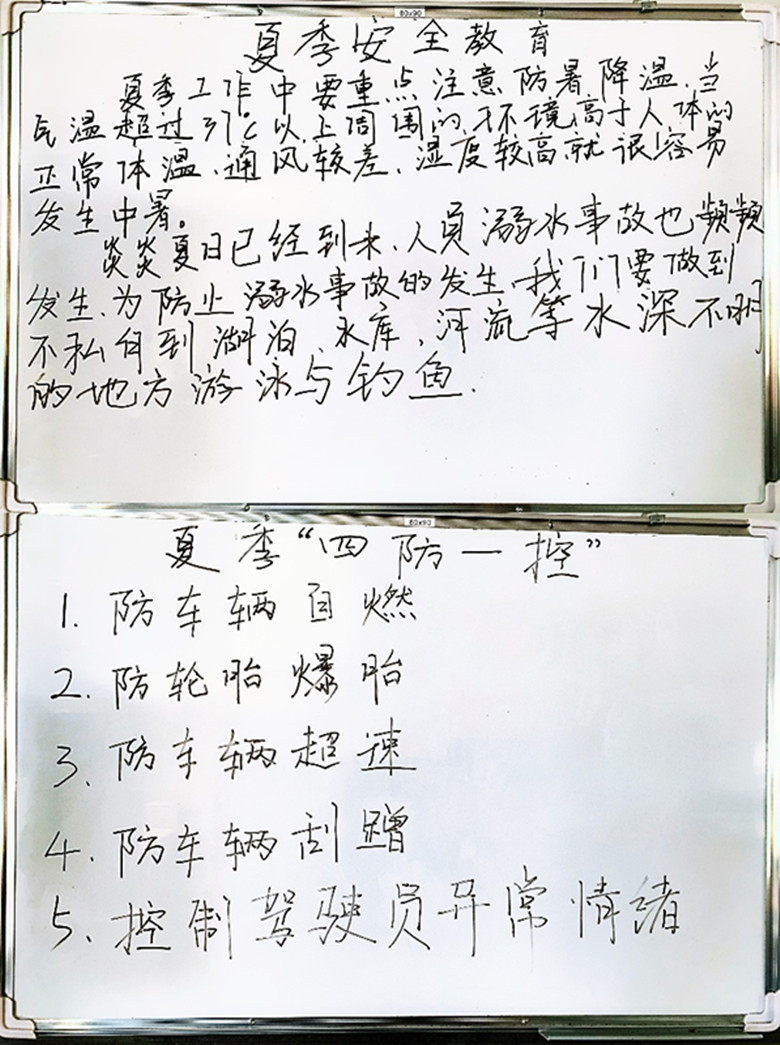 60x90
夏季安全教育
夏季工作中要重点注意防暑降温、当
气温超过37℃以上周围的环境高于人体的
正常体温、通风较差、湿度较高就很容易
发生中暑。
炎炎夏日已经到来、人员溺水事故也频频
发生、为防止溺水事故的发生、我们要做到
不私自到湖泊、水库、河流等水深不明
的地方游泳与钓鱼.
60x90
夏季“四防一控”
1. 防车辆自燃
2. 防轮胎爆胎
3. 防车辆超速
4. 防车辆刮蹭
5. 控制驾驶员异常情绪